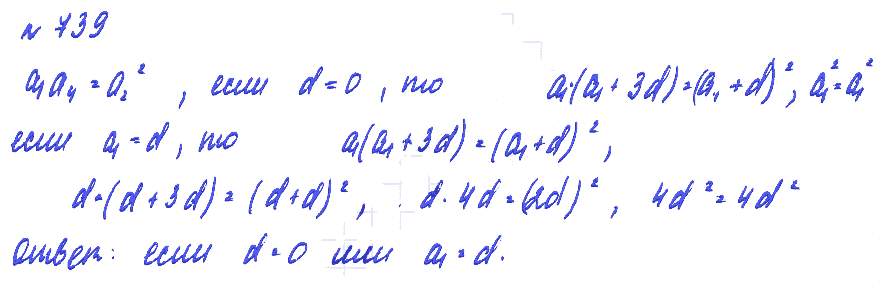 № 739
a₁a₄ = a₂², если d = 0, то a₁·(a₁ + 3d) = (a₁ + d)², a₁² = a₁²
если a₁ = d, то a₁(a₁ + 3d) = (a₁ + d)²,
d·(d + 3d) = (d + d)², d · 4d = (2d)², 4d² = 4d²
Ответ: если d = 0 или a₁ = d.